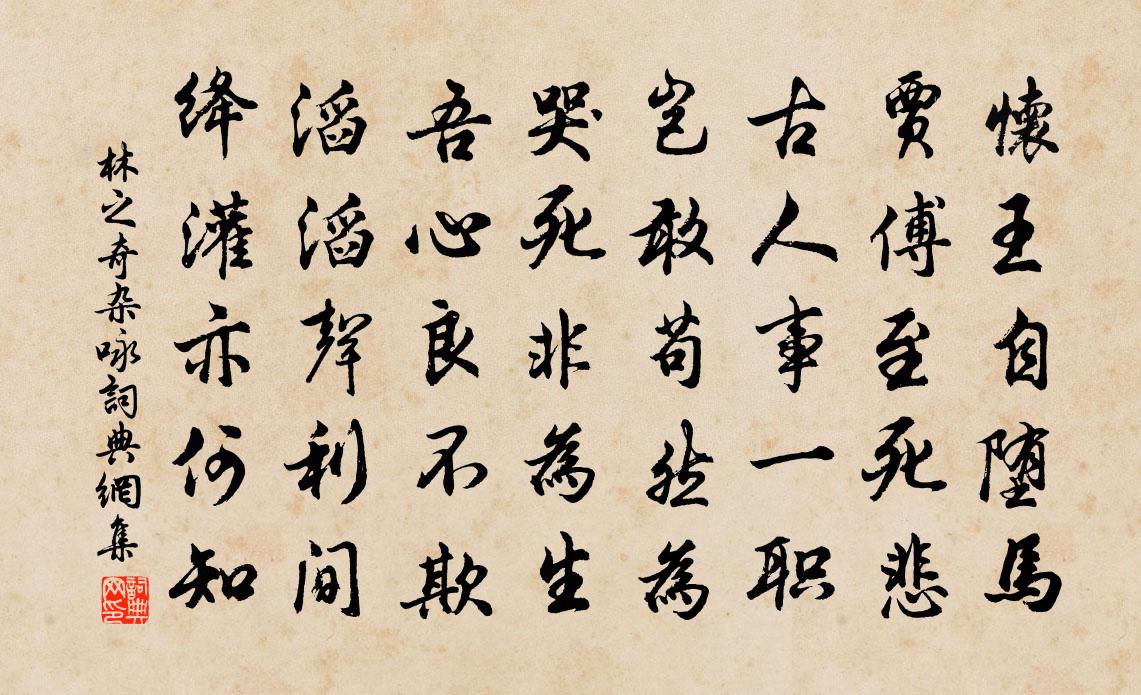 懷王自墮馬
賈傅至死悲
古人事一职
岂敢苟然為
哭死非為生
吾心良不欺
滔滔聲利间
绛灌亦何知
林之奇杂咏詞典網集
詞典网印